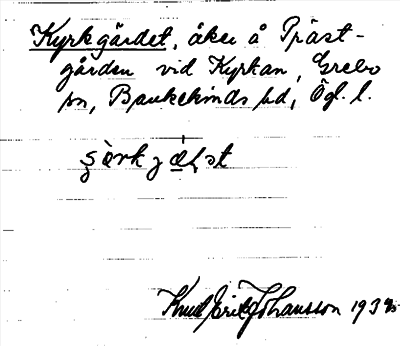 Kyrkgärdet, åker å Präst-
gården vid Kyrkan, Grebo
sn, Bankekinds hd, Ögl. l.
Knut Erik Johansson